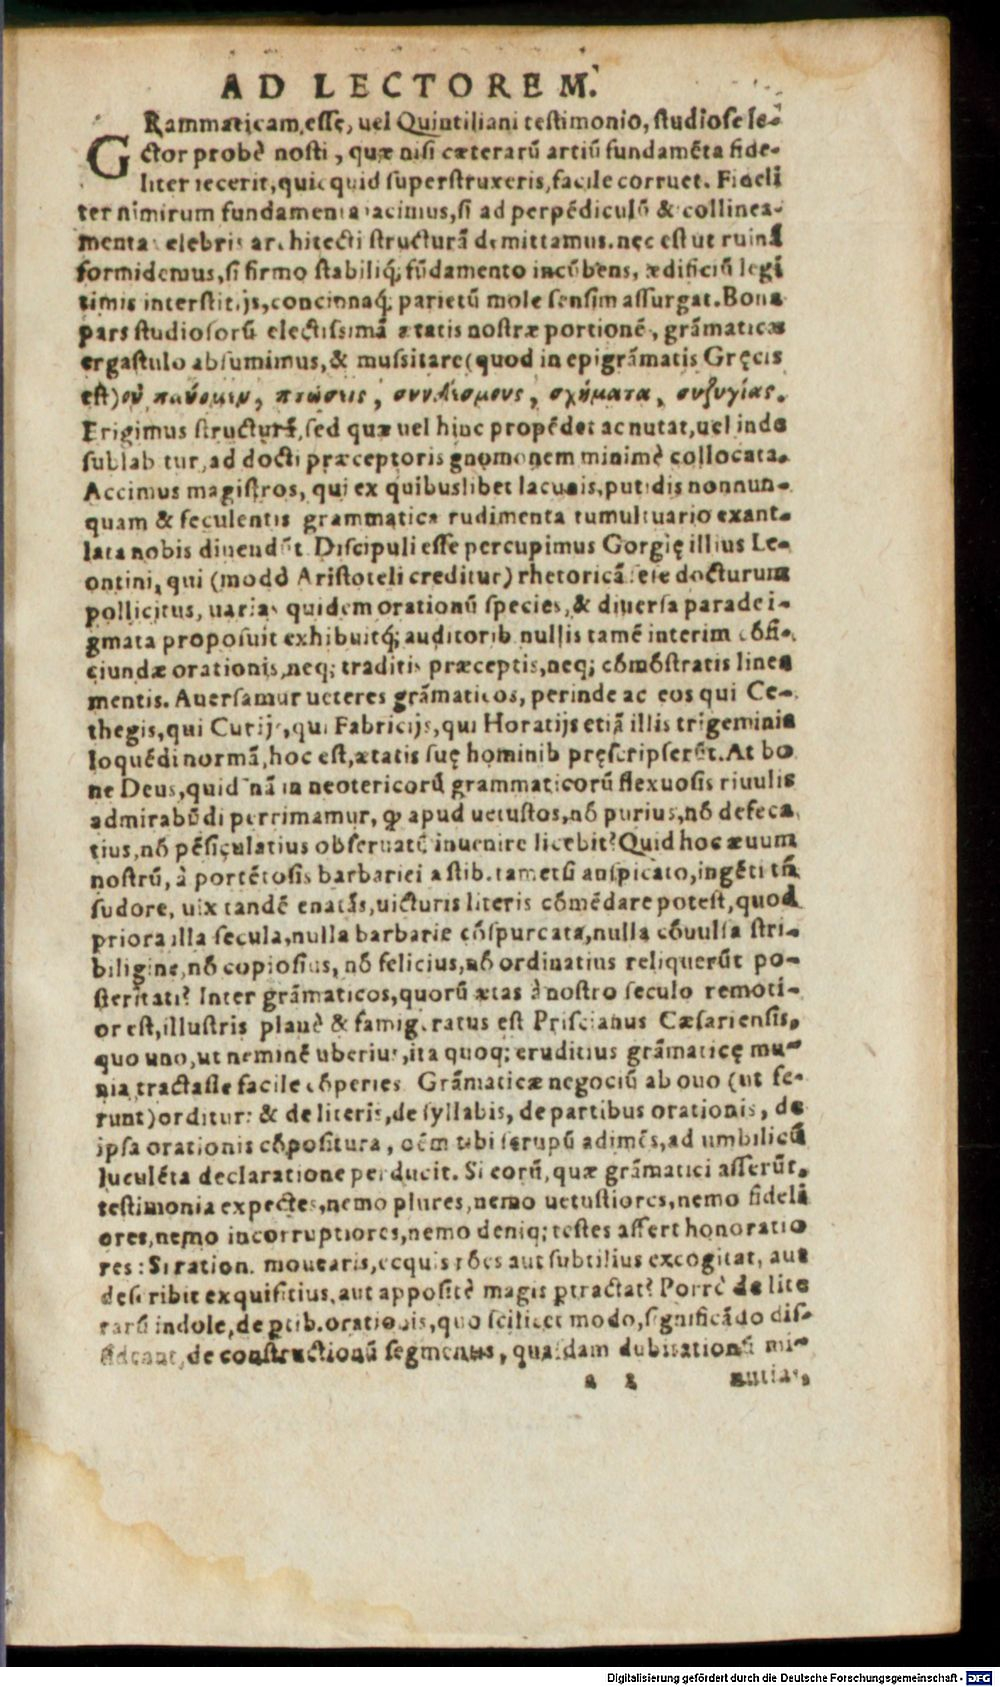 AD LECTOREM.
GRammaticam esse, uel Quintiliani testimonio, studiose le-
ctor probè nosti, quæ nisi cæterarū artiū fundamēta fide-
liter iecerit, quicquid superstruxeris, facile corruet. Fideli
ter nimirum fundamenta iacimus, si ad perpēdiculū & collinea-
menta celebris architecti structurā demittamus. nec est ut ruinā
formidemus, si firmo stabiliq; fūdamento incūbens, ædificiū legi
timis interstitijs, concinnaq; parietū mole sensim assurgat. Bona
pars studiosorū electissimā ætatis nostræ portionē, grāmaticæ
ergastulo absumimus, & mussitare (quod in epigrāmatis Gręcis
est) πτώσεις, συνδέσμους, σχήματα, συζυγίας.
Erigimus structurā, sed quæ uel hinc propēdet ac nutat, uel inde
sublabitur, ad docti præceptoris gnomonem minimè collocata.
Accimus magistros, qui ex quibuslibet lacunis, putidis nonnun-
quam & feculentis grammaticæ rudimenta tumultuario exant-
lata nobis diuendūt. Discipuli esse percupimus Gorgię illius Le-
ontini, qui (modò Aristoteli creditur) rhetoricā sese docturum
pollicitus, uarias quidem orationū species, & diuersa paradei-
gmata proposuit exhibuitq; auditorib. nullis tamē interim cōfi-
ciundæ orationis, neq; traditis præceptis, neq; cōmōstratis linea
mentis. Auersamur ueteres grāmaticos, perinde ac eos qui Ce-
thegis, qui Curijs, qui Fabricijs, qui Horatijs etiā illis trigeminis
loquēdi normā, hoc est, ætatis suę hominib. pręscripserūt. At bo
ne Deus, quid nā in neotericorū grammaticorū flexuosis riuulis
admirabūdi perrimamur, ꝙ apud uetustos, nō purius, nō defeca
tius, nō pēsiculatius obseruatū inuenire licebit? Quid hoc æuum
nostrū, à portētosis barbariei a stib. tametsi auspicato, ingēti tñ
sudore, uix tandē enatās, uicturis literis cōmēdare potest, quod
priora illa secula, nulla barbarie cōspurcata, nulla cōuulsa stri-
biligine, nō copiosius, nō felicius, nō ordinatius reliquerūt po-
steritati? Inter grāmaticos, quorū ætas à nostro seculo remoti-
or est, illustris planè & famigeratus est Priscianus Cæsariensis,
quo uno, ut neminē uberius, ita quoq; eruditius grāmaticę mu-
nia tractasse facile cōperies. Grāmaticæ negociū ab ouo (ut fe-
runt) orditur: & de literis, de syllabis, de partibus orationis, de
ipsa orationis cōpositura, oēm tibi scrupū adimēs, ad umbilicū
luculēta declaratione perducit. Si eorū, quæ grāmatici asserūt,
testimonia expectes, nemo plures, nemo uetustiores, nemo fideli
ores, nemo incorruptiores, nemo deniq; testes affert honoratio
res: Si ration. mouearis, ecquis rōes aut subtilius excogitat, aut
describit exquisitius, aut appositè magis ꝑtractat? Porrò de lite
rarū indole, de ꝑtib. orationis, quo scilicet modo, significādo dis-
sideant, de constructionū segmentis, quasdam dubitationū mi-
a 2 nutias,
Digitalisierung gefördert durch die Deutsche Forschungsgemeinschaft - DFG